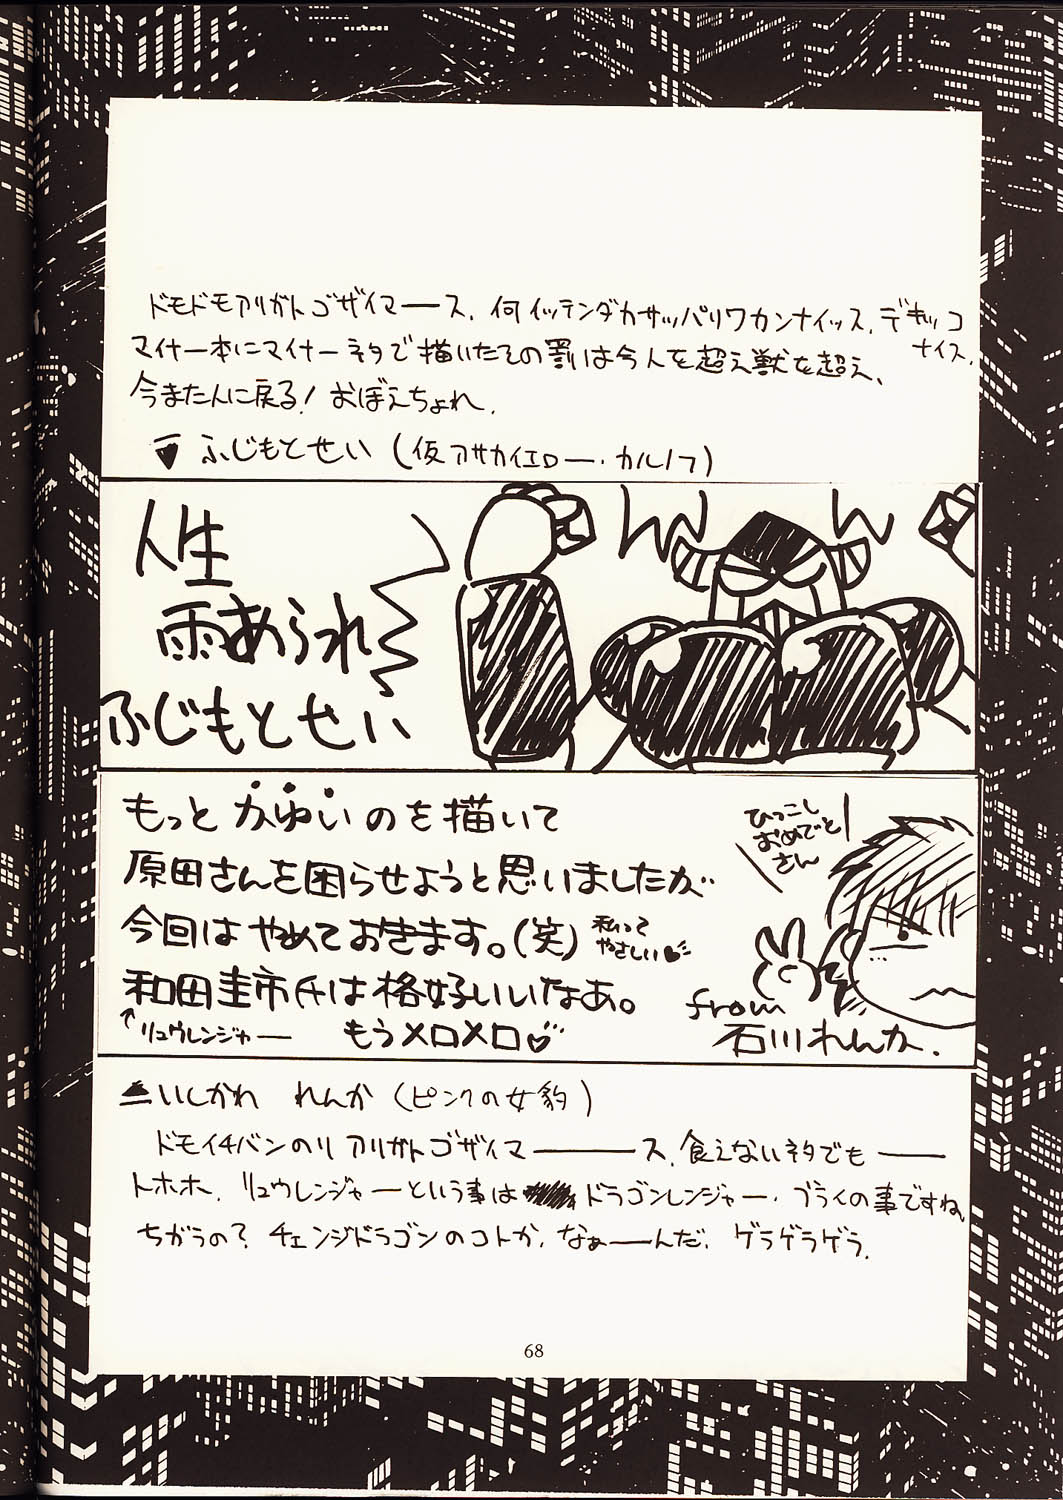 ドモドモアリガトゴザイマース、何イッテンダカサッパリワカンナイッス、デキッコナイス、
マイナー本にマイナーネタで描いたその罰は今人を超え獣を超え、
今また人に戻る!おぼえちょれ、
ふじもとせい(仮アサカイエロー・カルノフ)
人生
雨あられ
ふじもとせい
もっとかゆいのを描いて
原田さんを困らせようと思いましたが
今回はやめておきます。(笑)私ってやさしい♥
和田圭市氏は格好いいなあ。
↑リュウレンジャー もうメロメロ♡
ひっこし
おめでと
さん
from
石川れんか.
いしかわ れんか(ピンクの女豹)
ドモイチバンのリアリガトゴザイマーース、食えないネタでもー
トホホ、リュウレンジャーという事はドラゴンレンジャー・ブライの事ですね、
ちがうの?チェンジドラゴンのコトか、なぁーんだ、ゲラゲラゲラ、
68